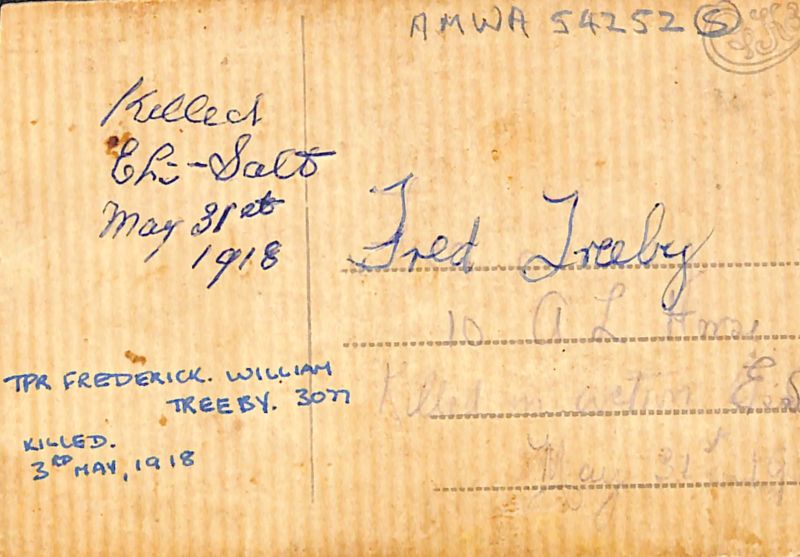 AMWA 54252 S
Killed
Eh-Salt
May 31st
1918
Fred Treeby
10 A L Hrse
Killed in action Es
May 31st 19
TPR FREDERICK. WILLIAM
TREEBY. 3077
KILLED.
3RD MAY, 1918